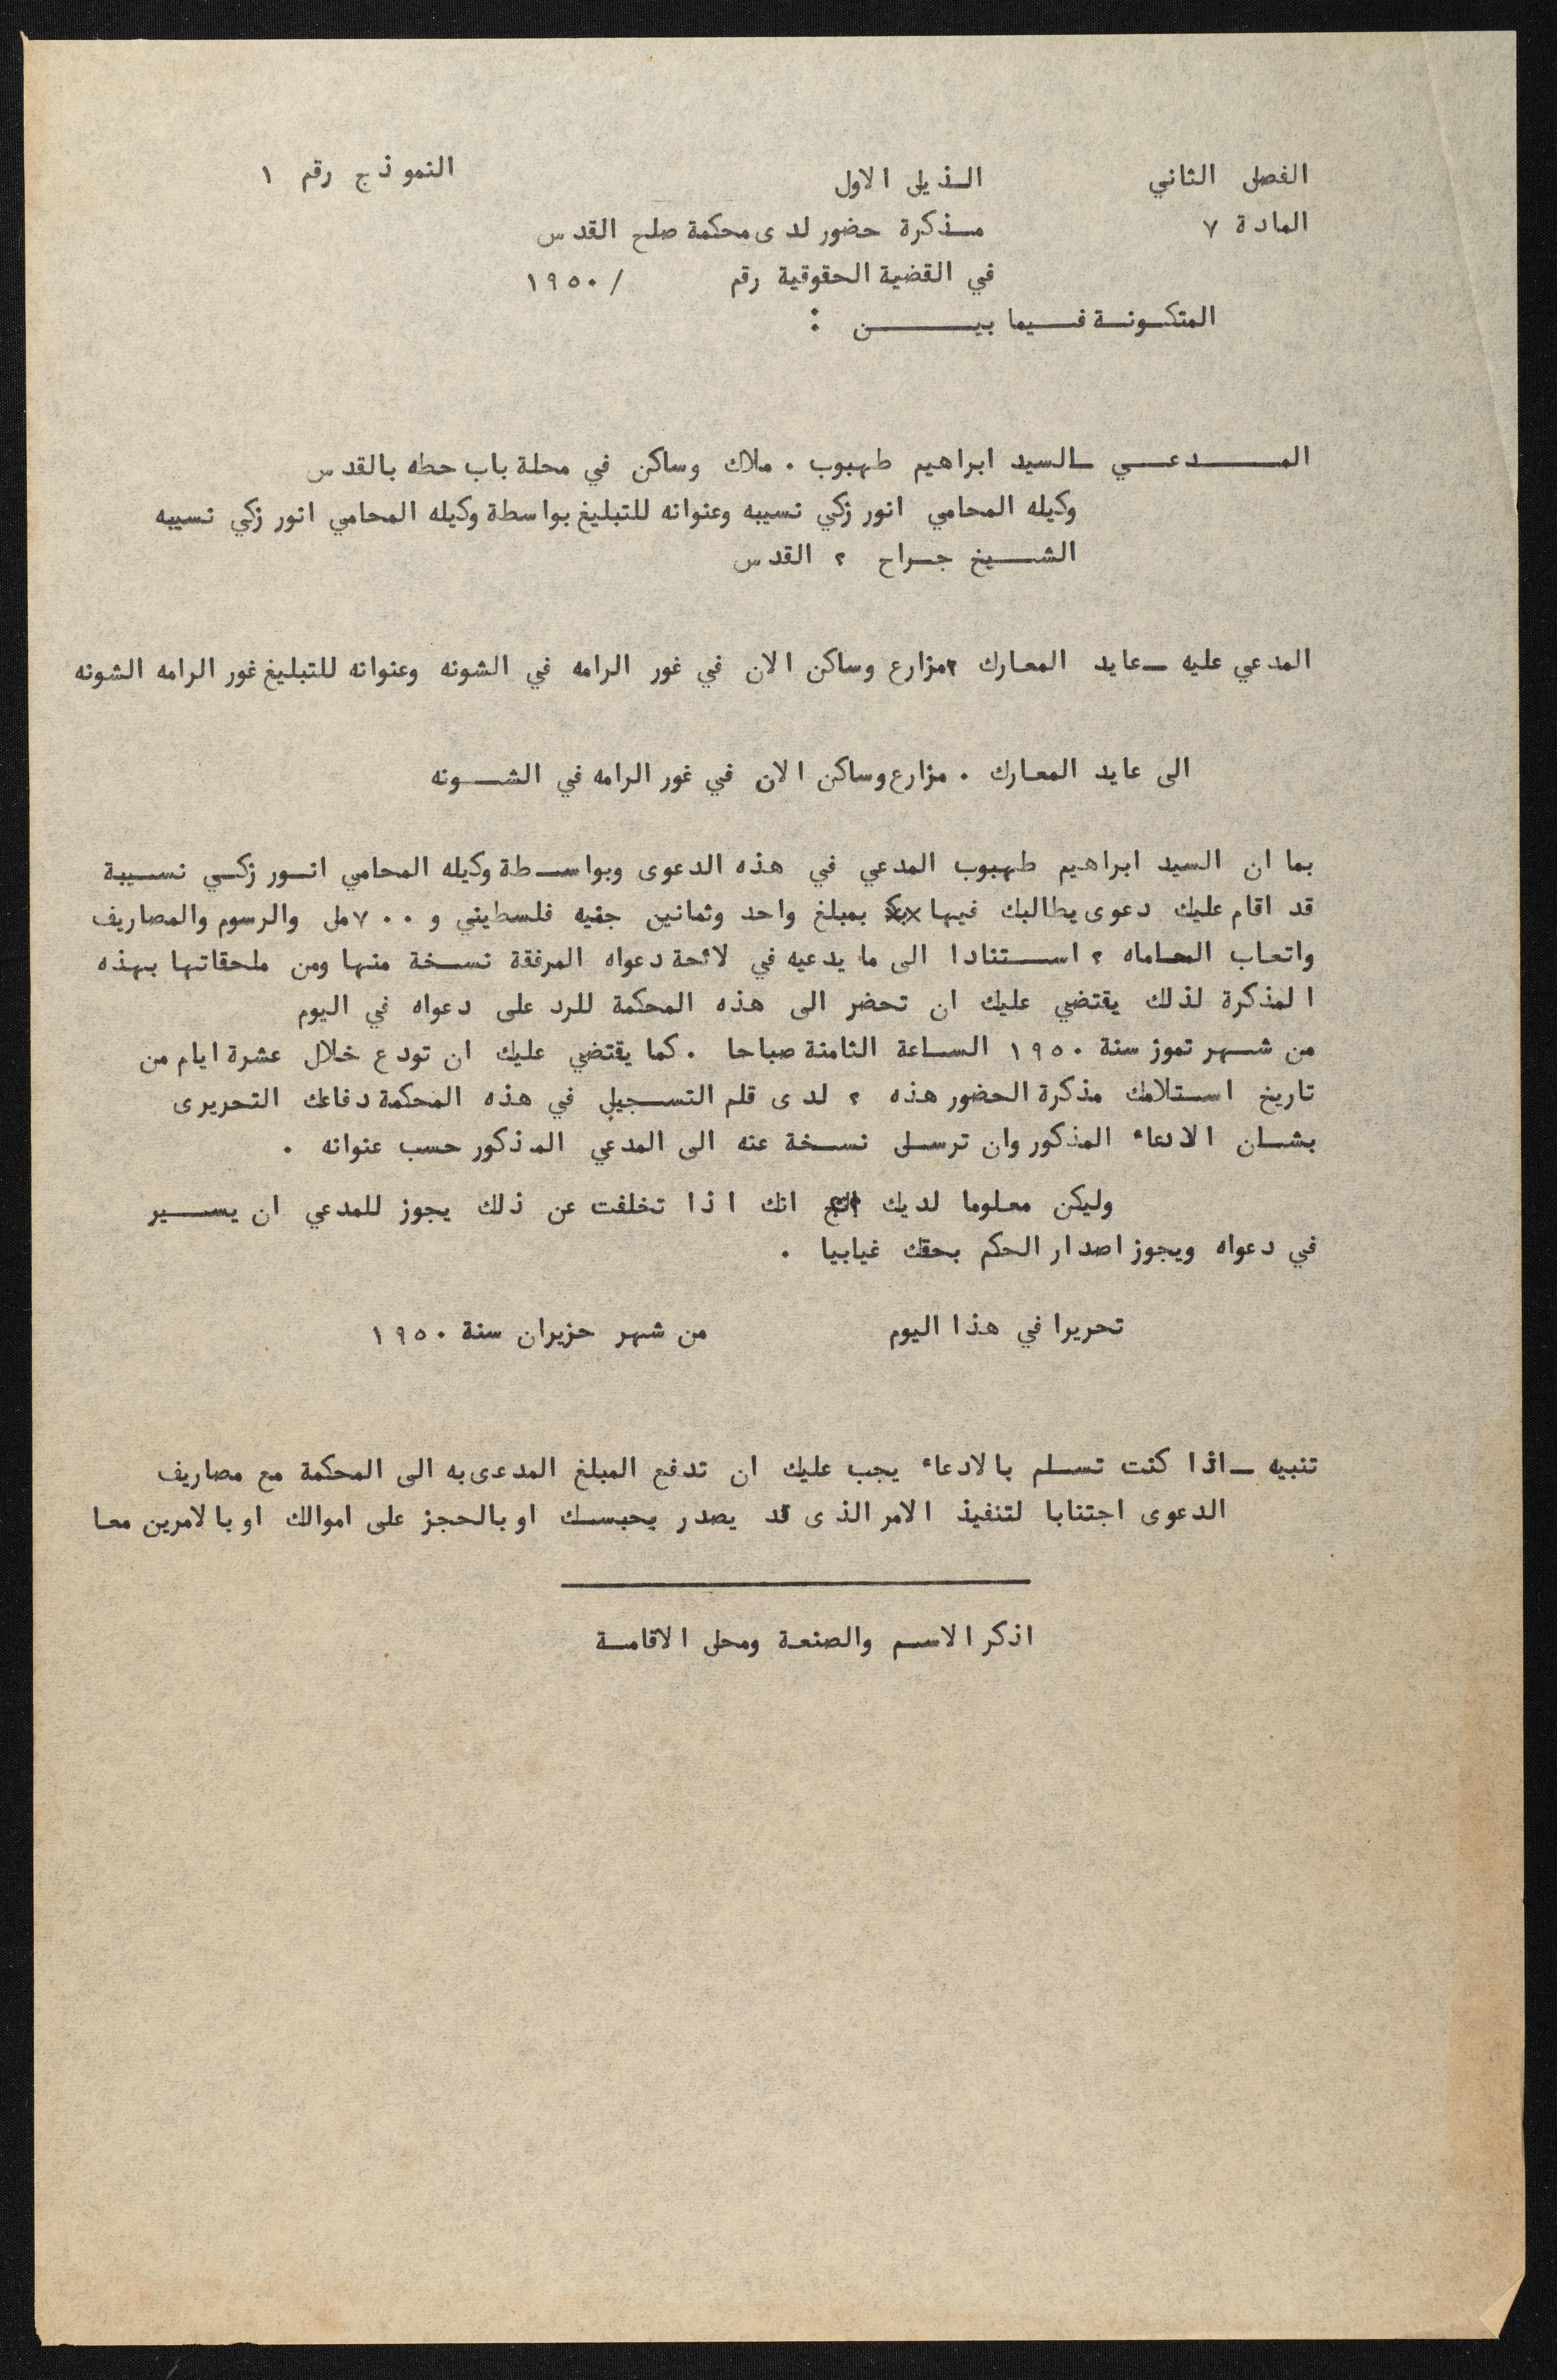 الفصل الثاني الذيل الاول النموذج رقم ١
المادة ٧ مذكرة حضور لدى محكمة صلح القدس
في القضية الحقوقية رقم / ١٩٥٠
المتكونة فيما بين :
المدعي ـ السيد ابراهيم طهبوب . ملاك وساكن في محلة باب حطه بالقدس
وكيله المحامي انور زكي نسيبه وعنوانه للتبليغ بواسطة وكيله المحامي انور زكي نسيبه
الشيخ جراح ، القدس
المدعي عليه ـ عايد المعارك ، مزارع وساكن الان في غور الرامه في الشونه وعنوانه للتبليغ غور الرامه الشونه
الى عايد المعارك . مزارع وساكن الان في غور الرامه في الشونه
بما ان السيد ابراهيم طهبوب المدعي في هذه الدعوى وبواسطة وكيله المحامي انور زكي نسيبة
قد اقام عليك دعوى يطالبك فيها بمبلغ واحد وثمانين جنيه فلسطيني و ٧٠٠ مل والرسوم والمصاريف
واتعاب المحاماه ، استنادا الى ما يدعيه في لائحة دعواه المرفقة نسخة منها ومن ملحقاتها بهذه
المذكرة لذلك يقتضي عليك ان تحضر الى هذه المحكمة للرد على دعواه في اليوم
من شهر تموز سنة ١٩٥٠ الساعة الثامنة صباحا . كما يقتضي عليك ان تودع خلال عشرة ايام من
تاريخ استلامك مذكرة الحضور هذه ، لدى قلم التسجيل في هذه المحكمة دفاعك التحريرى
بشان الادعاء المذكور وان ترسل نسخة عنه الى المدعي المذكور حسب عنوانه .
وليكن معلوما لديك انك اذا تخلفت عن ذلك يجوز للمدعي ان يسير
في دعواه ويجوز اصدار الحكم بحقك غيابيا .
تحريرا في هذا اليوم من شهر حزيران سنة ١٩٥٠
تنبيه ـ اذا كنت تسلم بالادعاء يجب عليك ان تدفع المبلغ المدعى به الى المحكمة مع مصاريف
الدعوى اجتنابا لتنفيذ الامر الذى قد يصدر بحبسك او بالحجز على اموالك او بالامرين معا
اذكر الاسم والصنعة ومحل الاقامة